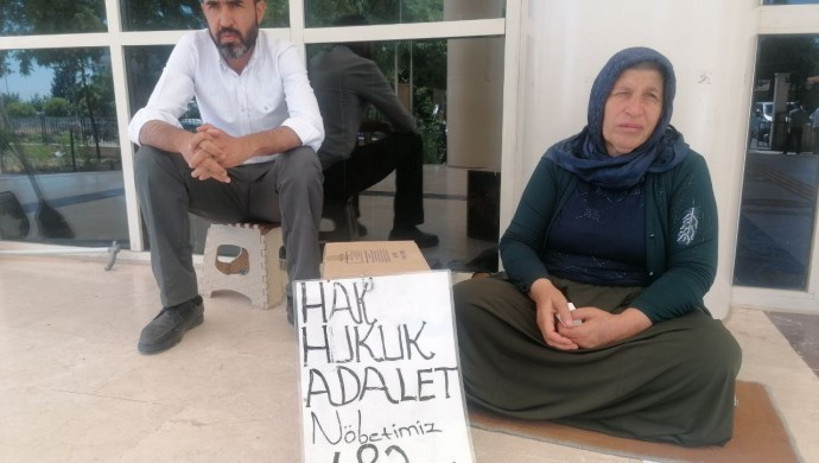 HAK
HUKUK
ADALET
Nöbetimiz